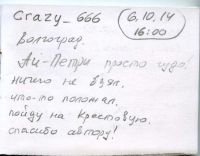 Crazy_666
6.10.14
16:00
Волгоград.
Ай-Петри просто чудо.
Ничего не взял,
что-то положил,
пойду на Крестовую.
спасибо автору!